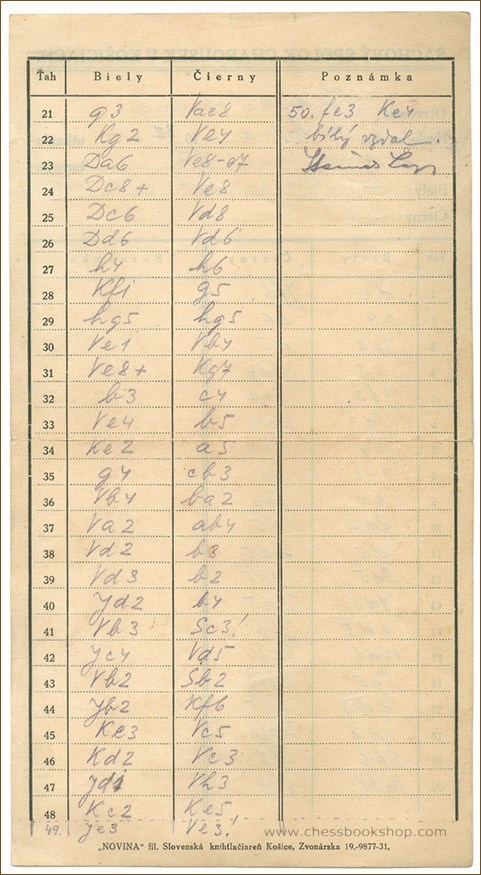 Ťah Biely Čierny Poznámka
21 g3 Vae8 50. fe3 Ke4
22 Kg2 Ve4 bílý vzdal.
23 Da6 Ve8-e7
24 Dc8+ Ve8
25 Dc6 Vd8
26 Dd6 Vd6
27 h4 h6
28 Kf1 g5
29 hg5 hg5
30 Ve1 Vb4
31 Ve8+ Kg7
32 b3 c4
33 Ve4 b5
34 Ke2 a5
35 g4 cb3
36 Vb4 ba2
37 Va2 ab4
38 Vd2 b3
39 Vd3 b2
40 Jd2 b4
41 Vb3 Sc3!
42 Jc4 Vd5
43 Vb2 Sb2
44 Jb2 Kf6
45 Ke3 Vc5
46 Kd2 Vc3
47 Jd1 Vh3
48 Kc2 Ke5
49. Je3 Ve3!
www.chessbookshop.com
„NOVINA" fil. Slovenská knihtlačiareň Košice, Zvonárska 19.-9877-31.